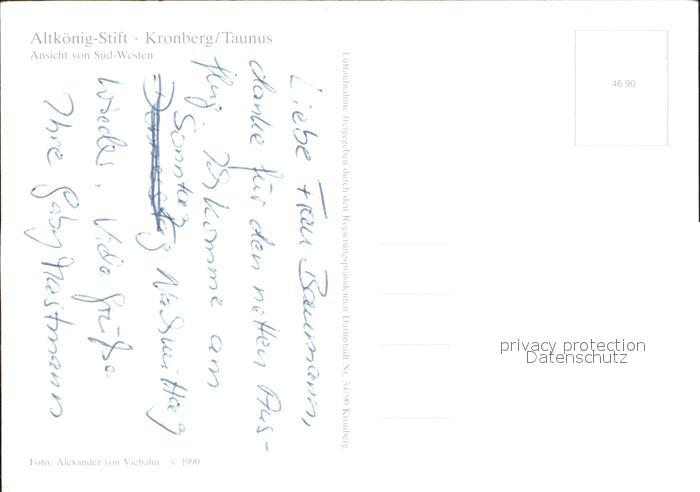 Altkönig-Stift · Kronberg/Taunus
Ansicht von Süd-Westen
Liebe Frau Baumann,
danke für den netten Aus-
flug. Ich komme am
Sonntag
Donnerstag Nachmittag
wieder. Viele Grüße
Ihre Gaby
Luftaufnahme freigegeben durch den Regierungspräsidenten Darmstadt Nr. 34/90 Kronberg
46/90
privacy protection
Datenschutz
Foto: Alexander von Viebahn © 1990